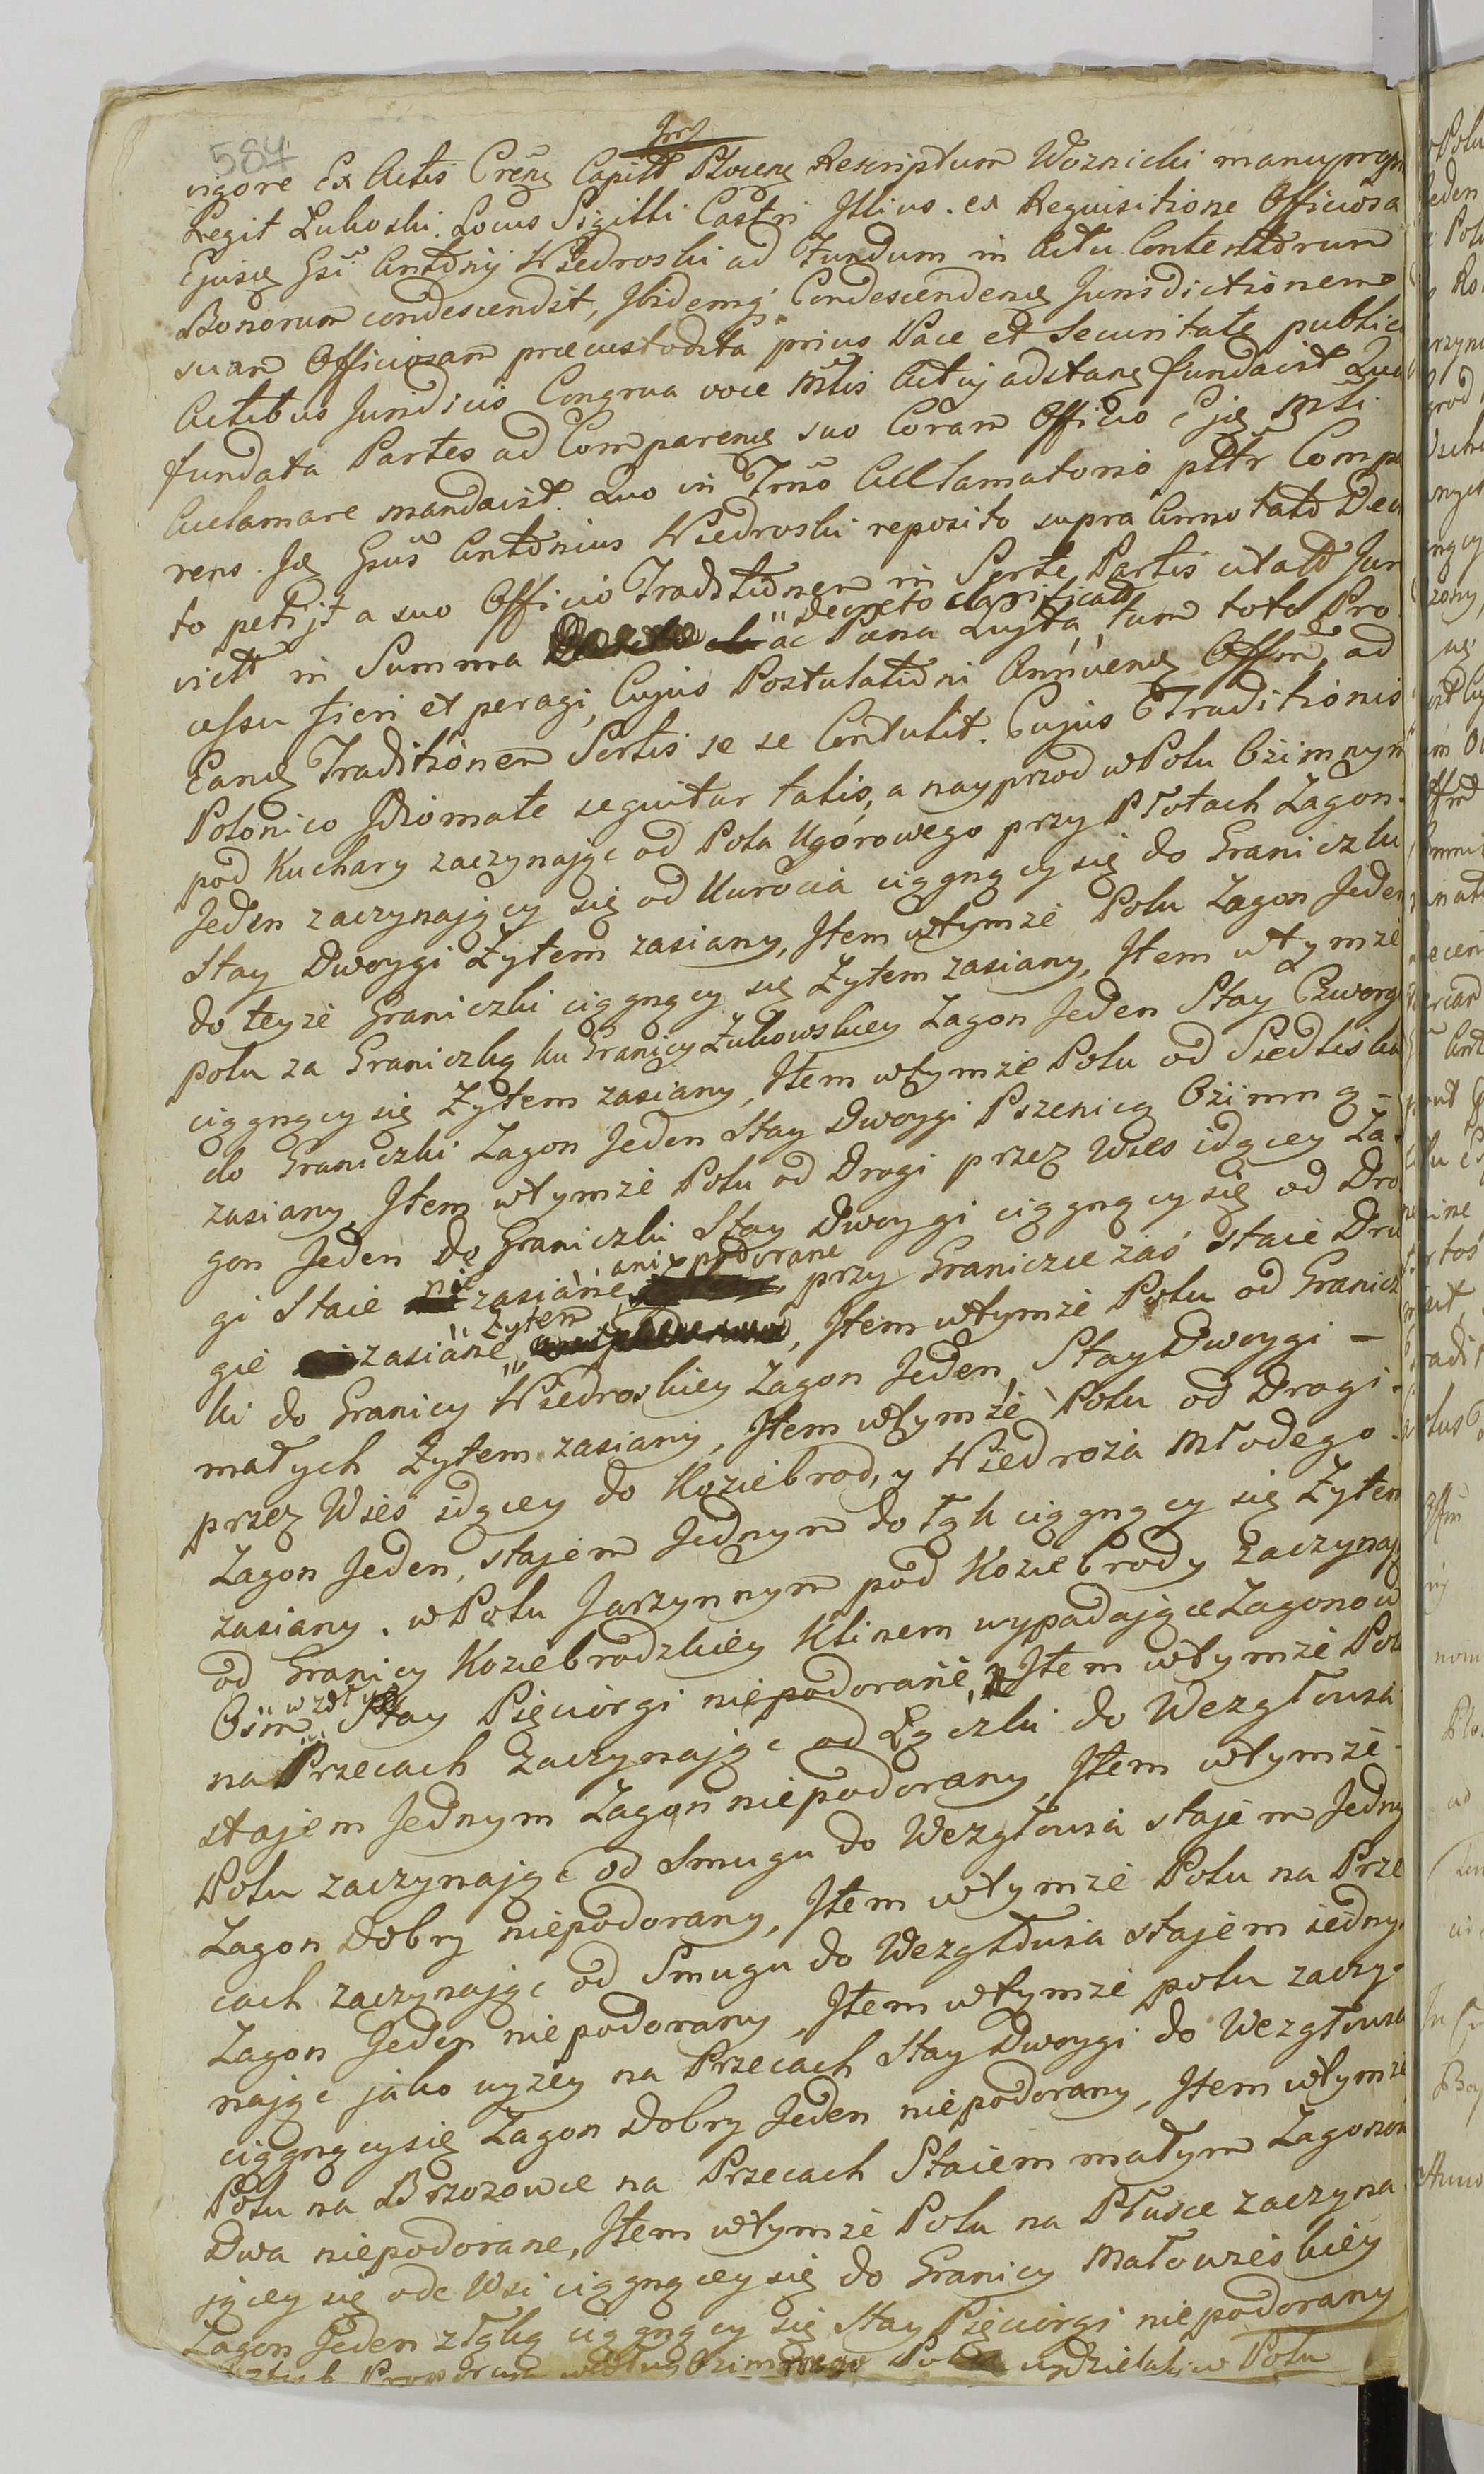 584
vigore Ex Actis Cren̄ Capitt Plocen̄ Rescriptum Woznicki manu propr
Legit Lukoski. Locus Sigilli Castri Illius. ex Requisitione Officiosa
Ejusq Gsi Antonij Niedroski ad Fundum in Actu Contentorum
Bonorum condescendit, Ibidemq Condescenden Jurisdictionem
suam Officiosam praecustodita prius Pace et Securitate publica
Actibus Juridicis Congrua voce Mtlis Actuj adstan fundavit Qua
fundata Partes ad Comparen suo Coram Officio Ejq Mtli
Acclamare mandavit. Quo in Trno Acclamatorio pttr Compa
rens. Jd Gsus Antonius Niedroski reposito supra Annotato Decr
to petijt a suo Officio Traditionem in Sorte Partis citatt Jur
decreto clarificato
victt in Summa ac Paena Lujta, tum toto Pro
cessu fieri et peragi, Cujus Postulationi Annuen Offm, ad
Eand Traditionem Sortis se se Contulit. Cujus Traditionis
Polonico Idiomate sequitur talis, a nayprzod w Polu Ozimnym
pod Kuchary zaczynając od Pola Ugorowego przy Płotach Zagon
Jeden zaczynający się od Kurocia ciągnący się do Graniczki
Stay Dwoygi Żytem zasiany, Item wtymże Polu Zagon Jeden
do teyże Graniczki ciągnący się Żytem zasiany, Item wtymże
polu za Graniczką ku Granicy Żukowskiey Zagon Jeden Stay Czworgi
ciągnący się Żytem zasiany, Item wtymże Polu od Siedliska
do Graniczki Zagon Jeden Stay Dwoygi Pszenicą Ozimną -
zasiany, Item wtymże Polu od Drogi przez Wies idącey Za-
gon Jeden Do Graniczki Stay Dwoygi ciągnący się od Dro
nie ani podorane
gi Staie zasiane, przy Graniczce zaś staie Dru
Żytem
gie zasiane, Item wtymże Polu od Granicz
ki do Granicy Niedroskiey Zagon Jeden, Stay Dwoygi -
małych Żytem zasiany, Item wtymże Polu od Drogi
przez Wieś idącey do Koziebrod, y Niedroża Młodego
Zagon Jeden, stajem Jednym do Łąk ciągnący się Żytem
zasiany. w Polu Jarzynnym pod Koziebrody zaczynają
od Granicy Koziebrodzkiey Klinem wypadające Zagonow
Ośm Stay Pięciorgi niepodorane, Item wtymże Polu
na Przecach Zaczynając od Łączki do Wezgłowia
stajem Jednym Zagon niepodorany, Item wtymże
Polu zaczynając od Smugu do Wezgłowia stajem Jedny
Zagon Dobry niepodorany, Item wtymże Polu na Prze
cach zaczynając od Smugu do Wezgłowia stajem iedny
Zagon Jeden niepodorany, Item wtymże polu zaczy-
nając jako wyzey na Przecach Stay Dwoygi do Wezgłowia
ciągnący się Zagon Dobry Jeden niepodorany, Item wtymże
Polu na Brzozowce na Przecach Staiem małym Zagonow
Dwa niepodorane, Item wtymże Polu na Płusce zaczyna
jącey się ode Wsi ciągnącey się do Granicy Małowieskiey
Zagon Jeden z Łąką ciągnący się Stay Pięciorgi niepodorany
według Ozimnego w Polu